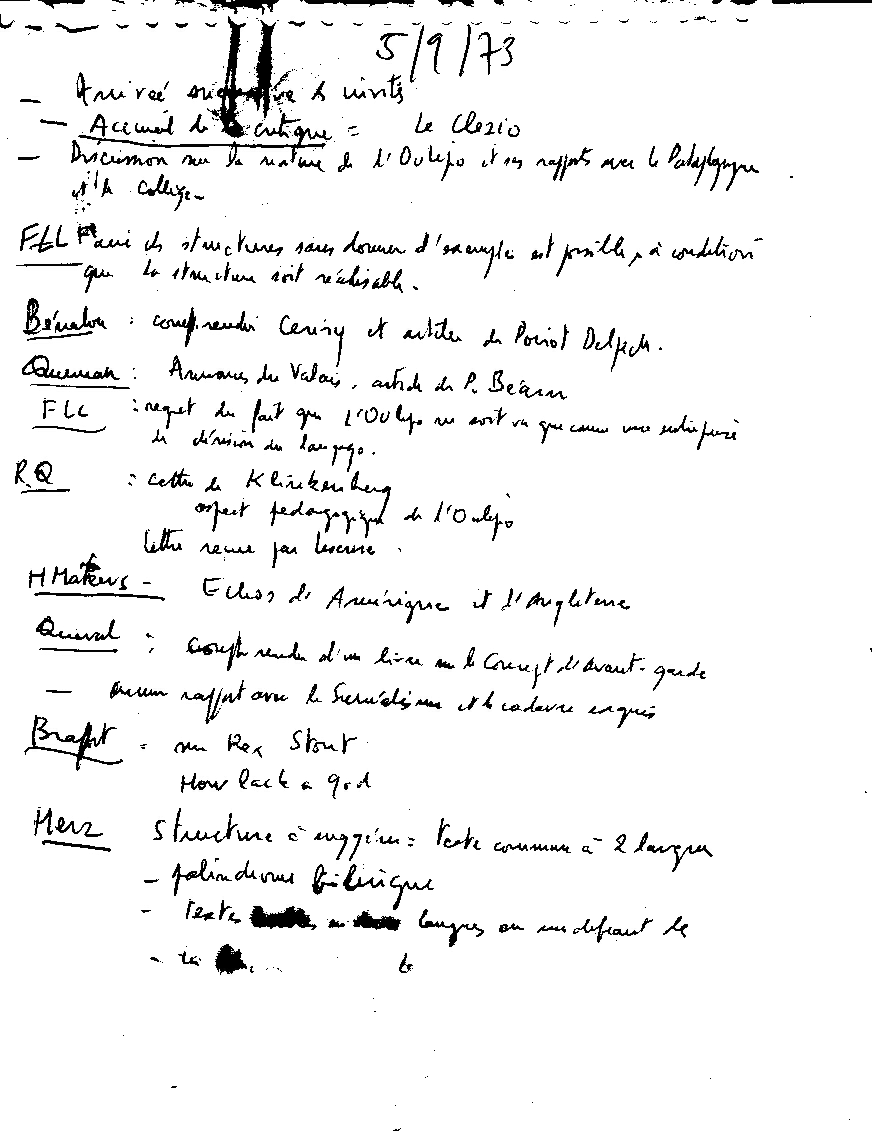 5/9/73
— Arrivée successive des invités
— Accueil de la critique = Le Clezio
— Discussion sur la nature de l'Oulipo et ses rapports avec la Pataphysique
et le Collège.
FLL Faire des structures sans donner d'exemples est possible, à condition
que la structure soit réalisable.
Bénabou : compte rendu Cerisy et articles de Poirot Delpech.
Queneau : Annonces du Valais, article de P. Béarn
FLL : regret du fait que l'Oulipo ne soit vu que comme une entreprise
de dérision du langage.
R.Q : lettre de Klinkenberg
aspect pédagogique de l'Oulipo
lettre reçue par Lescure.
H Mathews - Echos d'Amérique et d'Angleterre
Queval : compte rendu d'un livre sur le Concept d'Avant-garde
— aucun rapport avec le Surréalisme et le cadavre exquis
Braffort = sur Rex Stout
How like a god
Herz Structure à suggérer = texte commun à 2 langues
- palindrome bilingue
- Textes langues ou un
- la